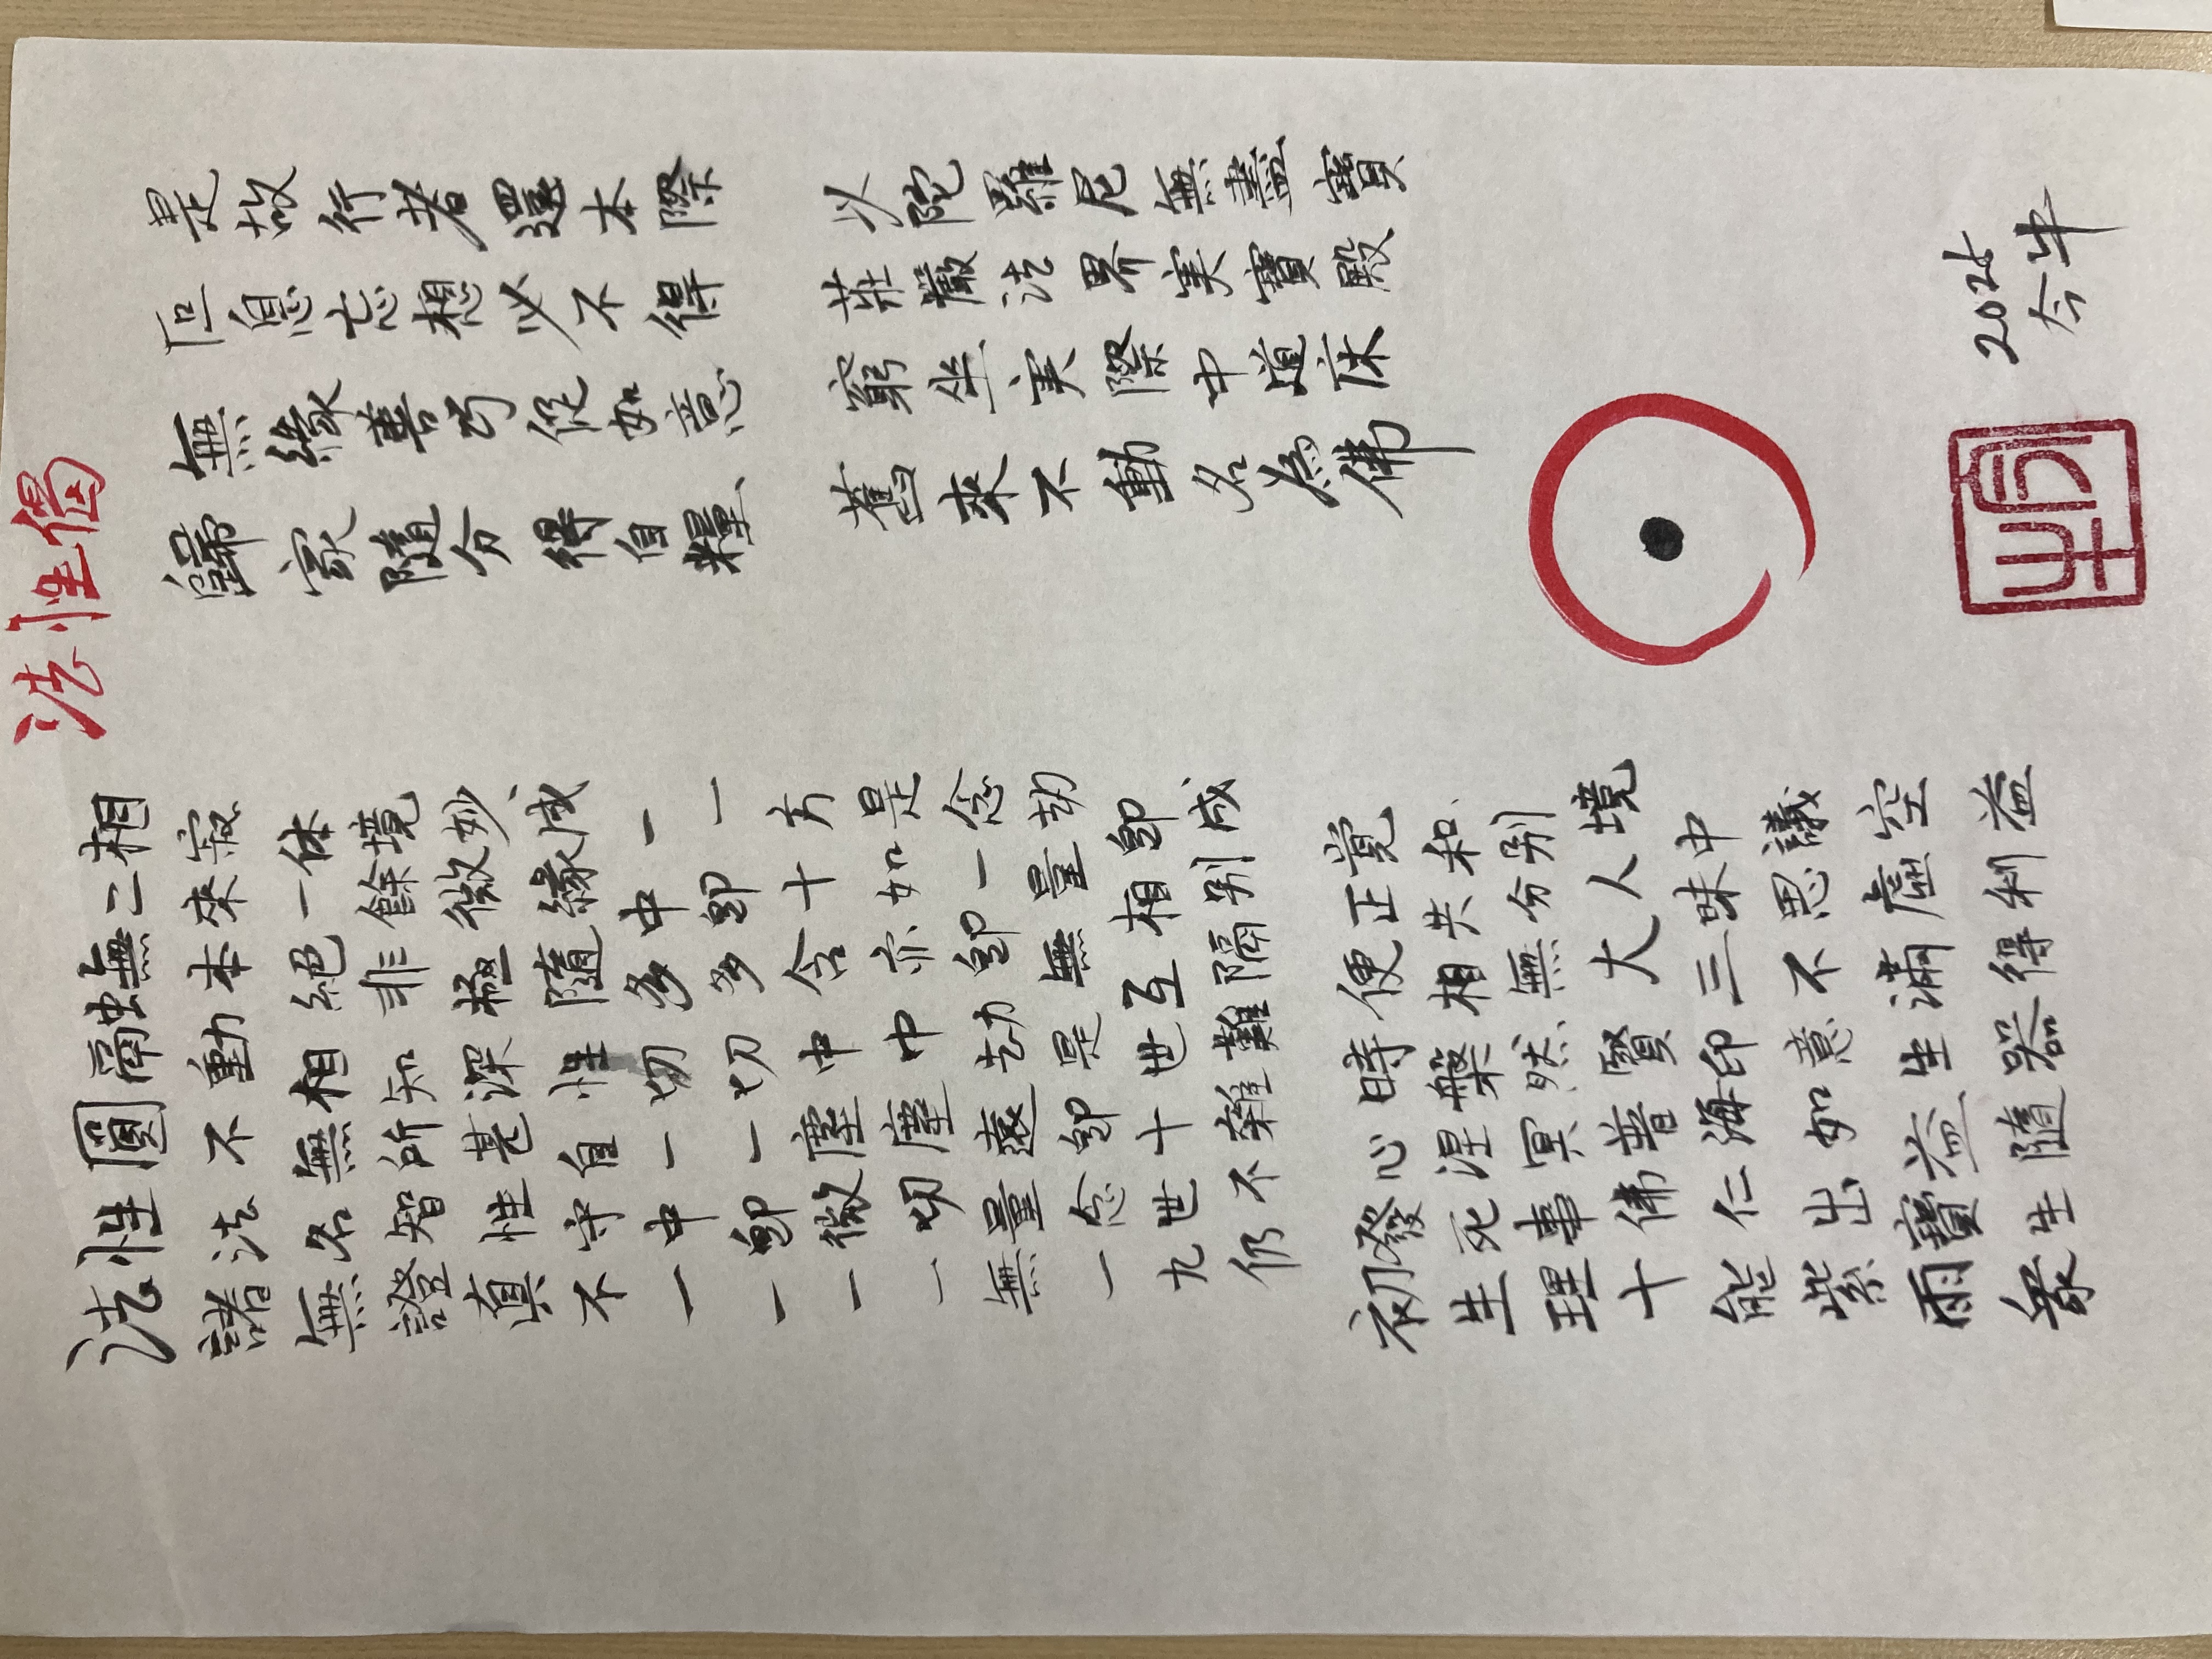 法性偈
法性圓融無二相
諸法不動本來寂
無名無相絕一体
證智所知非餘境
真性甚深極微妙
不守自性隨緣成
一中一切多中一
一即一切多即一
一微塵中含十方
一切塵中亦如是
無量遠劫即一念
一念即是無量劫
九世十世互相即
仍不雜難隔別成
初發心時便正覚
生死涅槃相共和
理事冥然無分別
十佛普賢大人境
能仁海印三昧中
紫出如意不思議
雨寶益生滿虛空
衆生隨器得利益
是故行者還本際
叵息忘想必不得
無緣善巧促如意
歸家隨分得自糧
以陀羅尼無盡寶
莊嚴法界実寶殿
窮坐実際中道床
舊來不動名為佛
2025
今牛